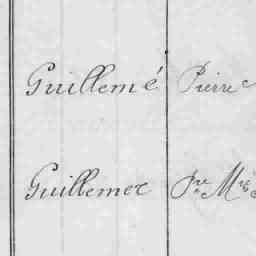 Guillemé Pierre
Guillemer Pre Mre